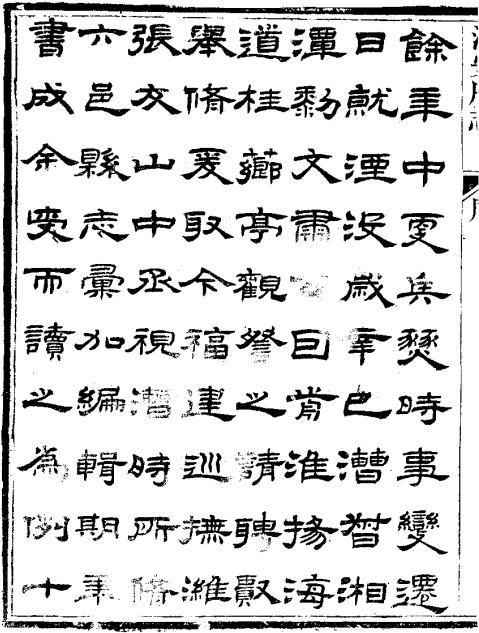 餘年中更兵燹時事變遷
日就湮没歲辛巳漕督湘
潭黎文肅公囙前淮揚海
道桂薌亭觀詧之請聘賢
舉脩爰取今福建巡撫濰
張友山中丞視漕時所脩
六邑縣志彙加編輯期年
書成余受而讀之為例十